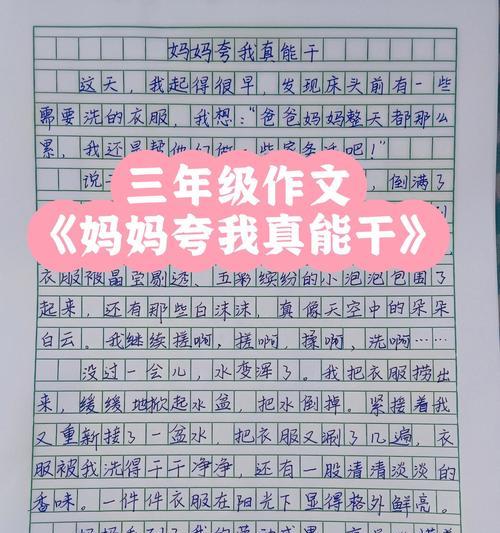 妈妈夸我真能干
这天，我起得很早，发现床头前有一些
需要洗的衣服，我想："爸爸妈妈整天都那么
累，我还是帮他们做一些家务活吧！"
说干
倒满了
三年级作文
《妈妈夸我真能干》
衣服被晶莹剔透、五彩缤纷的小泡泡包围了
起来，还有那些白沫沫，真像天空中的朵朵
白云。我继续搓啊，搓啊，揉啊，洗啊……
没过一会儿，水变浑了。我把衣服捞出
来，缓缓地掀起水盆，把水倒掉。紧接着我
又重新接了一盆水，把衣服又涮了几遍，衣
服被我洗得干干净净，还有一股清清淡淡的
香味。一件件衣服在阳光下显得格外鲜亮。